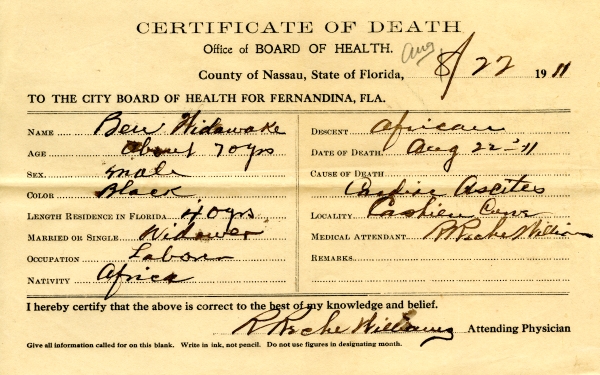 CERTIFICATE OF DEATH
Office of BOARD OF HEALTH.
Aug.
County of Nassau, State of Florida, 8/22 1911
TO THE CITY BOARD OF HEALTH FOR FERNANDINA, FLA.
NAME Ben Widawake
AGE About 70 yrs
SEX. Male
COLOR Black
LENGTH RESIDENCE IN FLORIDA 40 yrs
MARRIED OR SINGLE. Widower
OCCUPATION Labor
NATIVITY Africa
DESCENT African
DATE OF DEATH. Aug 22-'11
CAUSE OF DEATH
Ascites
LOCALITY
MEDICAL ATTENDANT. Williams
REMARKS.
I hereby certify that the above is correct to the best of my knowledge and belief.
Williams Attending Physician
Give all information called for on this blank. Write in ink, not pencil. Do not use figures in designating month.